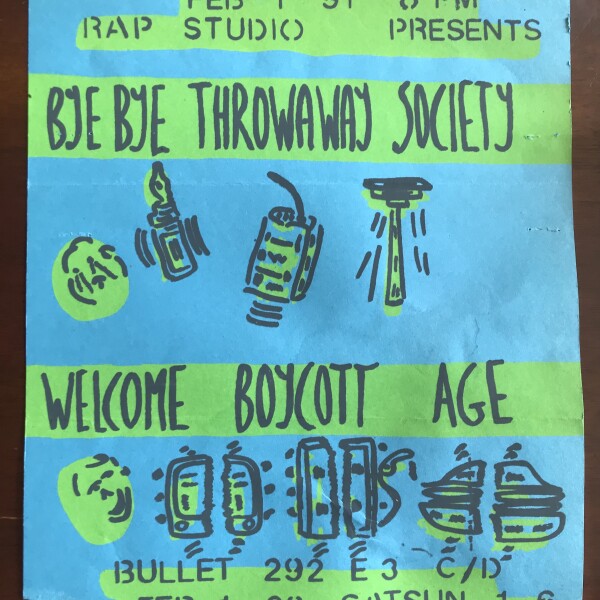 FEB 1 91 8 PM
RAP STUDIO PRESENTS
BYE BYE THROWAWAY SOCIETY
WELCOME BOYCOTT AGE
BULLET 292 E 3 C/D
SATSUN 1 6